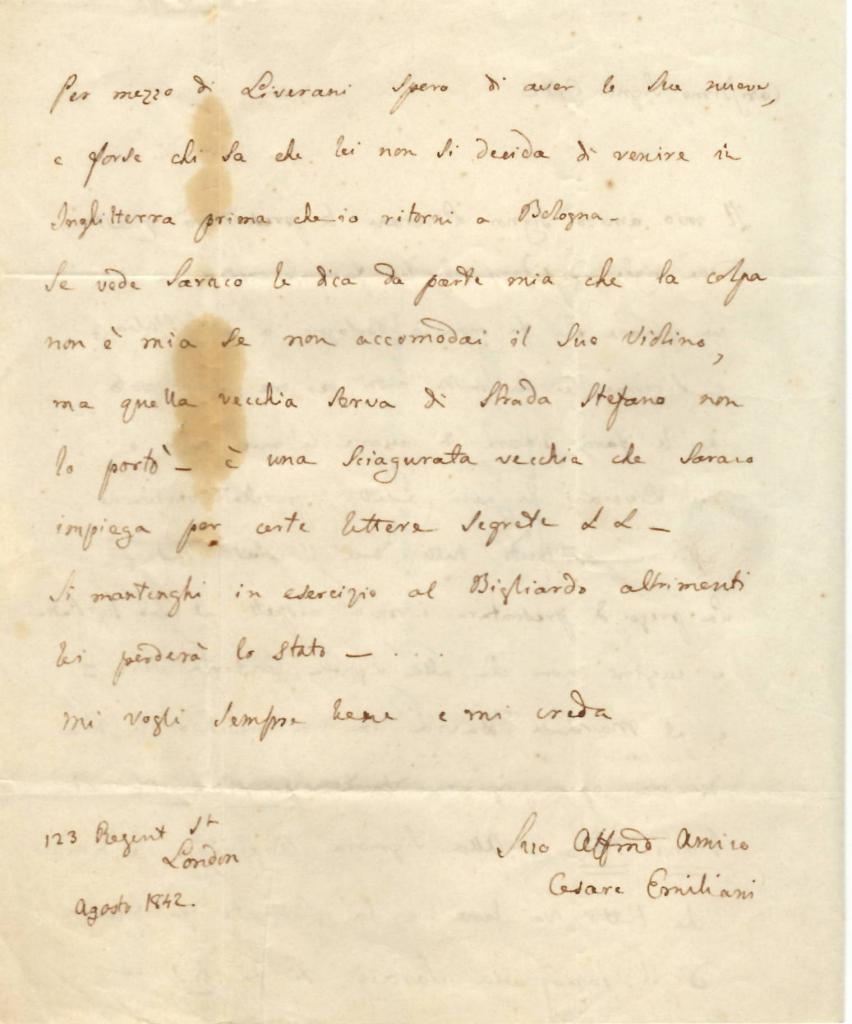 Per mezzo di Liverani spero di aver le Sue nuove,
e forse chi sa che lei non si decida di venire in
Inghilterra prima che io ritorni a Bologna -
Se vede Saraco le dica da parte mia che la colpa
non è mia se non accomodai il Suo Violino,
ma quella vecchia serva di Strada Stefano non
lo portò - è una sciagurata vecchia che Saraco
impiega per certe lettere segrete
Si mantenghi in esercizio al Bigliardo altrimenti
lei perderà lo stato - . . . .
Mi vogli sempre bene e mi creda
Suo Affmo Amico
Cesare Emiliani
123 Regent St
London
Agosto 1842.